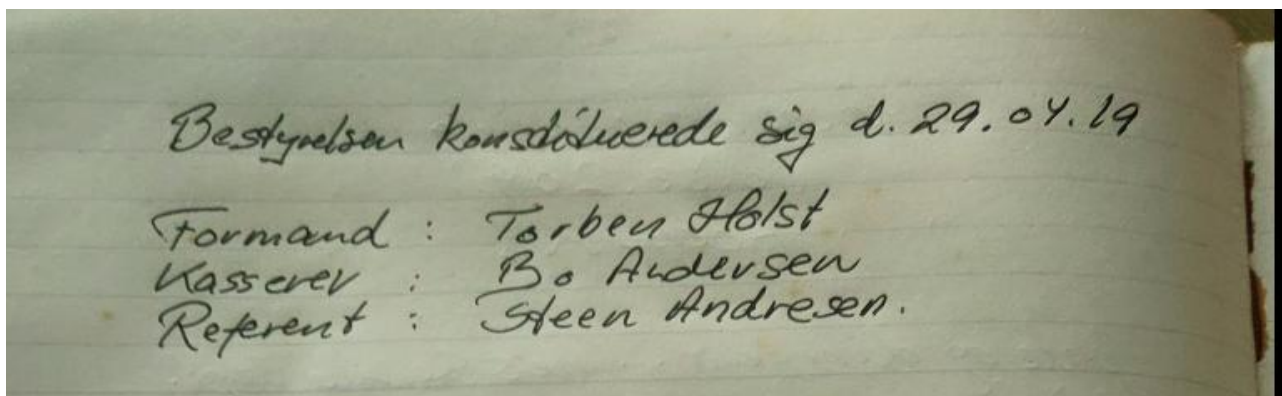 Bestyrelsen konstituerede sig d. 29.04.19
Formand : Torben Holst
Kasserer : Bo Andersen
Referent : Steen Andresen.